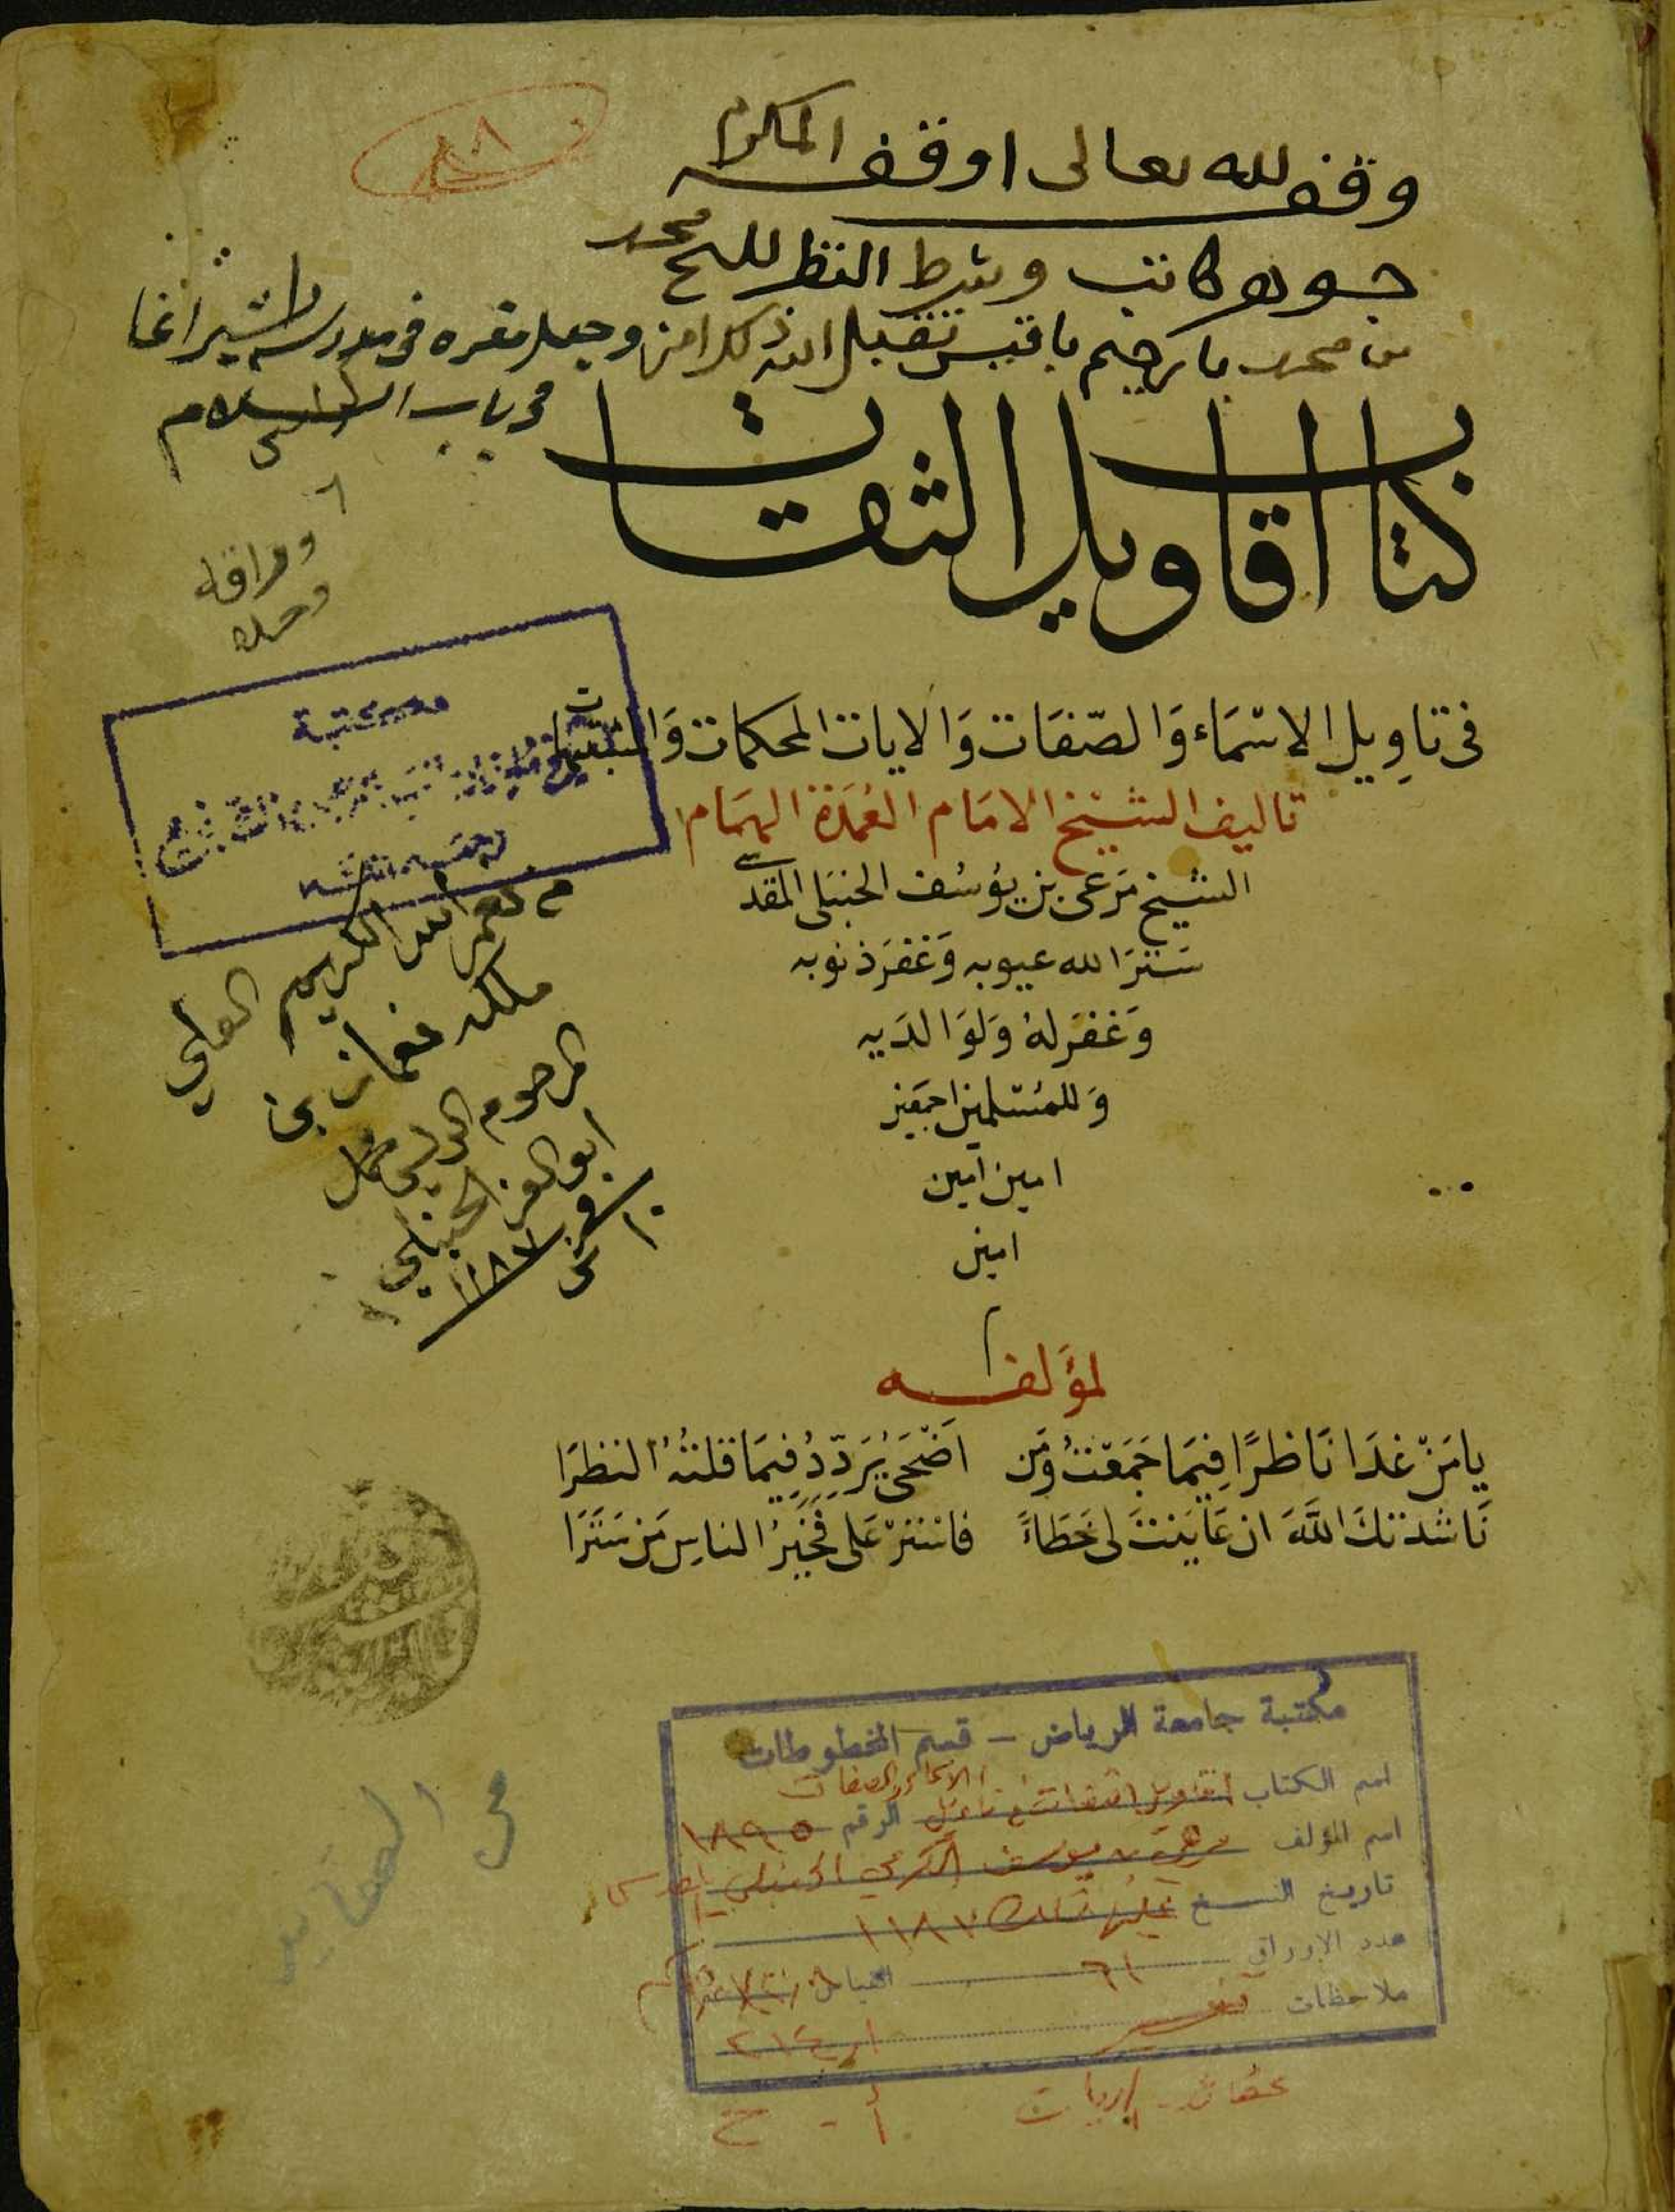 وقف لله تعالى اوقفه المكرم
جوهر كاتب وشرط النظر للشيخ محمد
بن محمد باكرجيم باقيس تقبل الله ذلك امين وجعل مقره في مدرسة بشير اغا
في باب السلام
كتاب اقاويل الثقات
في تاوِيل الاسْمَاء وَالصّفَات وَالايات المحكمات وَالمتشابهات
تاليف الشيْخ الامَام العُمَدَة الهمَام
الشيخ مَرعى بن يوسُف الحنبلى المقدسى
سَتَرَ الله عيوبه وَغفرَ ذنوبه
وَغفرَ لهُ وَلوَالدَيه
وَللمسُلمين اجمَعين
امين امين
امين
مكتبة
من نعم الله الكريم العلي
ملكه نعمان بن
المرحوم الولي محمد
ابو العز الحنبلي
١١٨٧
لمؤَلفه
يا مَنْ غدَا نَاظرًا فِيمَا جَمَعْتُ وَمَن اَضْحَى يُرَدّدُ فِيمَا قلتُهُ النظرَا
نَاشدتكَ اللَّهَ ان عَايَنتَ لى خَطَاءً فاستُرْ عَلى فَخَيرُ الناسِ مَن سَتَرَا
مكتبة جامعة الرياض – قسم المخطوطات
اسم الكتاب أقاويل الثقات في تأويل الأسماء والصفات الرقم ١٨٩٥
اسم المؤلف مرعي بن يوسف الكرمي الحنبلي المقدسي
تاريخ النسخ عليها تملك ١١٨٧
عدد الاوراق ٦١ القياس
ملاحظات تفسير ٢١٤